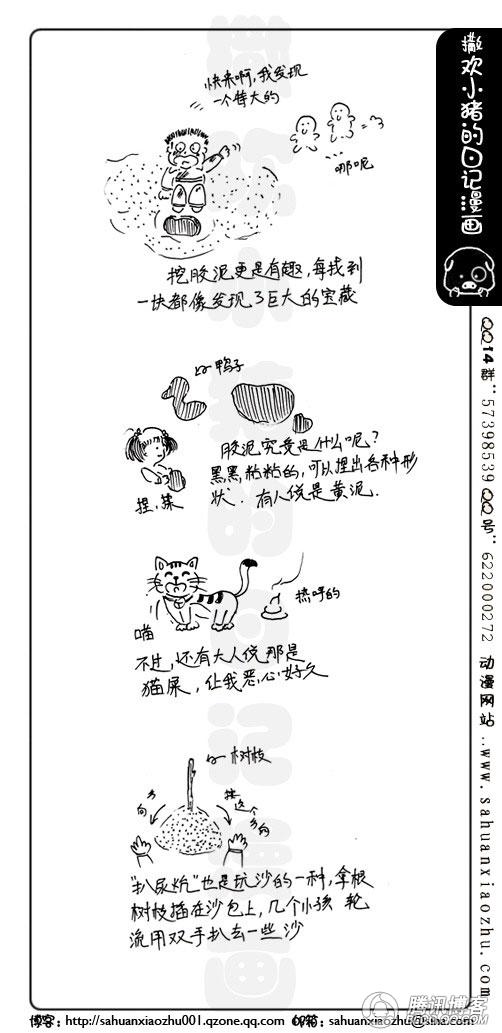 撒欢小猪的日记漫画
快来啊,我发现
一个特大的
哪呢
挖胶泥更是有趣,每找到
一块都像发现了巨大的宝藏
鸭子
胶泥究竟是什么呢?
黑黑粘粘的,可以捏出各种形
状.有人说是黄泥.
捏,揉
热呼的
喵
不过,还有大人说那是
猫屎,让我恶心好久
树枝
方向
按这个方向
"扒尿炕"也是玩沙的一种,拿根
树枝插在沙包上,几个小孩 轮
流用双手扒去一些沙
QQ14群:57398539 QQ号:622000272 动漫网站..www.sahuanxiaozhu.com
腾讯博客
博客:http://sahuanxiaozhu001.qzone.qq.com 邮箱:sahuanxiaozhu@sina.com